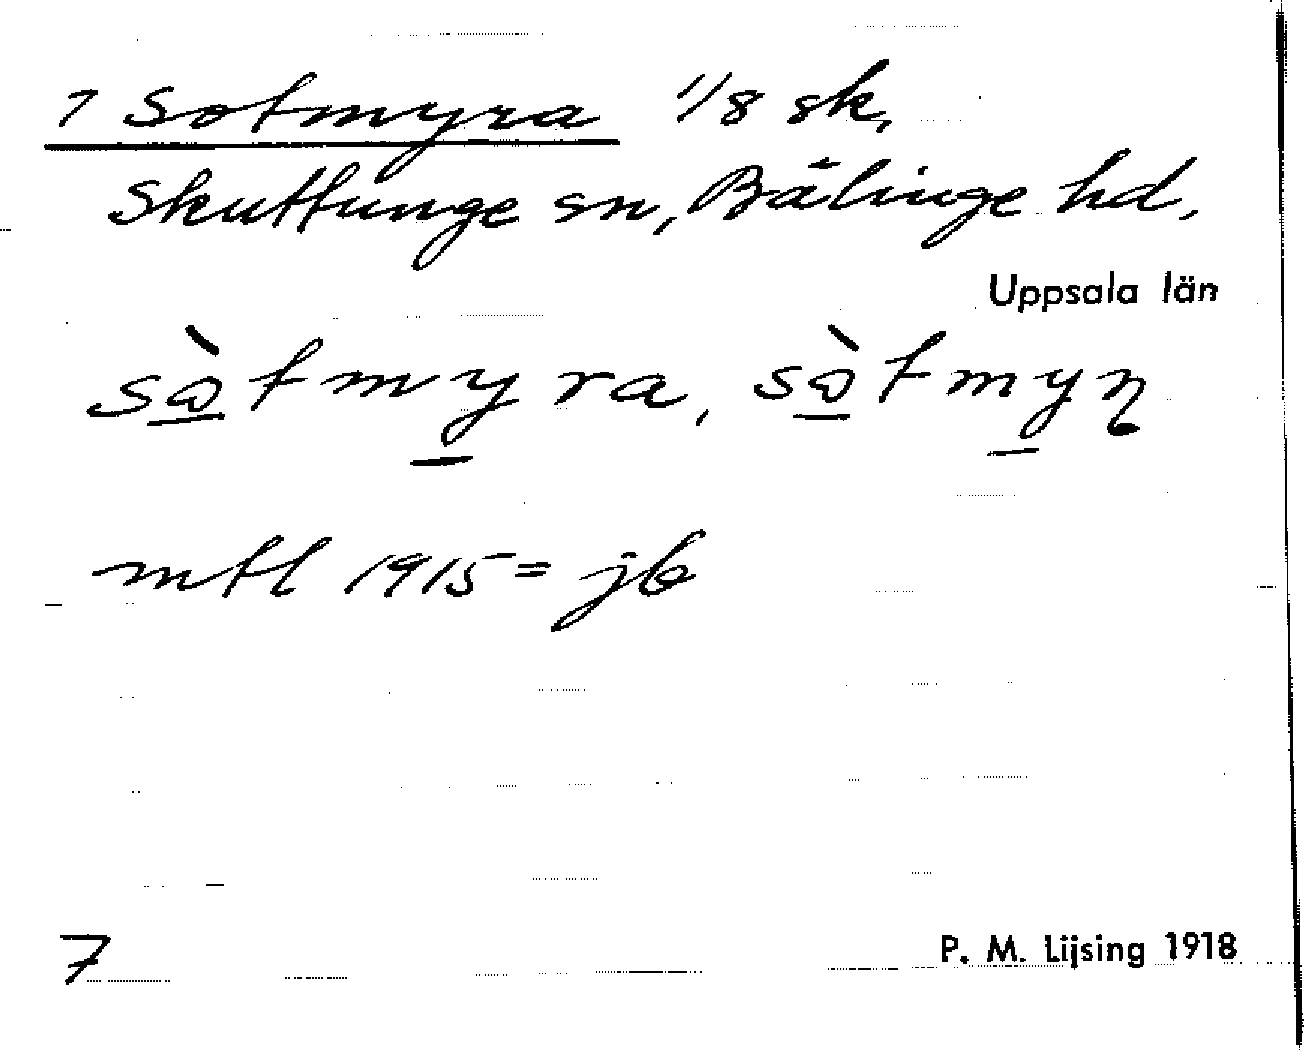 1 Sotmyra 1/8 sk,
Skuttunge sn, Bälinge hd,
Uppsala län
sòtmyra, sòtmyɳ
mtl 1915 = jb
7 P. M. Lijsing 1918